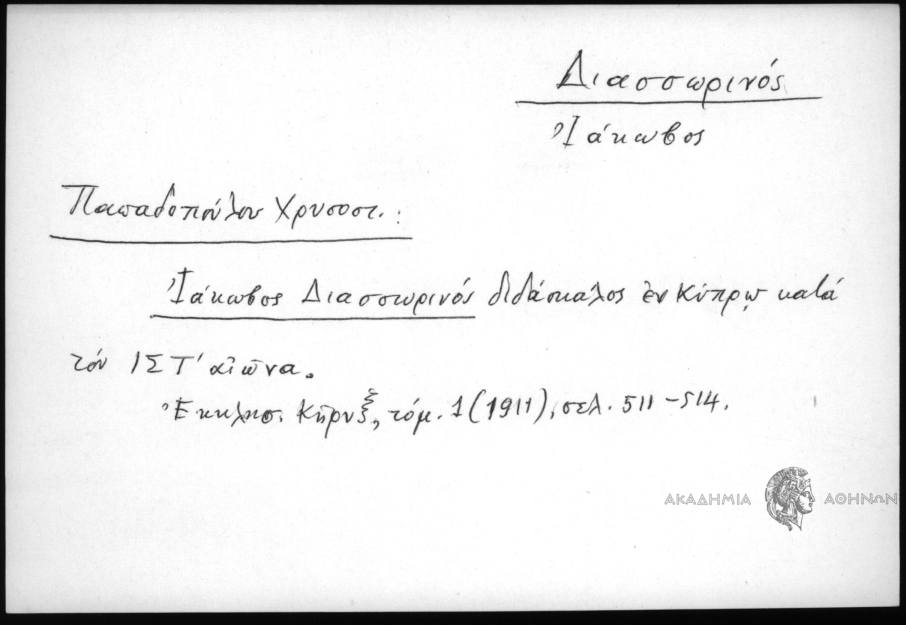 Διασσωρινός
Ἰάκωβος
Παπαδοπούλου Χρυσοστ.:
Ἰάκωβος Διασσωρινός διδάσκαλος ἐν Κύπρῳ κατά
τόν ΙΣΤ' αἰῶνα.
Ἐκκλησ. Κῆρυξ, τόμ. 1 (1911), σελ. 511-514.
ΑΚΑΔΗΜΙΑ ΑΘΗΝΩΝ